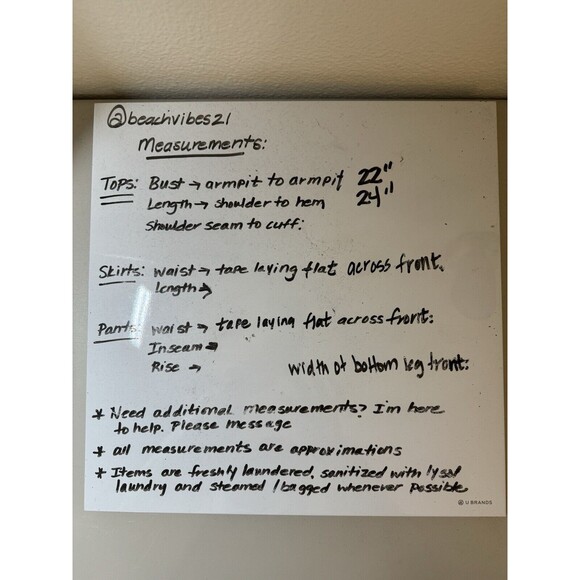 @beachvibes21
Measurements:
Tops: Bust → armpit to armpit 22"
Length → shoulder to hem 24"
Shoulder seam to cuff:
Skirts: waist → tape laying flat across front.
Length →
Pants: waist → tape laying flat across front:
Inseam →
Rise → width of bottom leg front:
* Need additional measurements? I'm here
to help. Please message
* all measurements are approximations
* Items are freshly laundered, sanitized with lysol
laundry and steamed / bagged whenever possible
U BRANDS